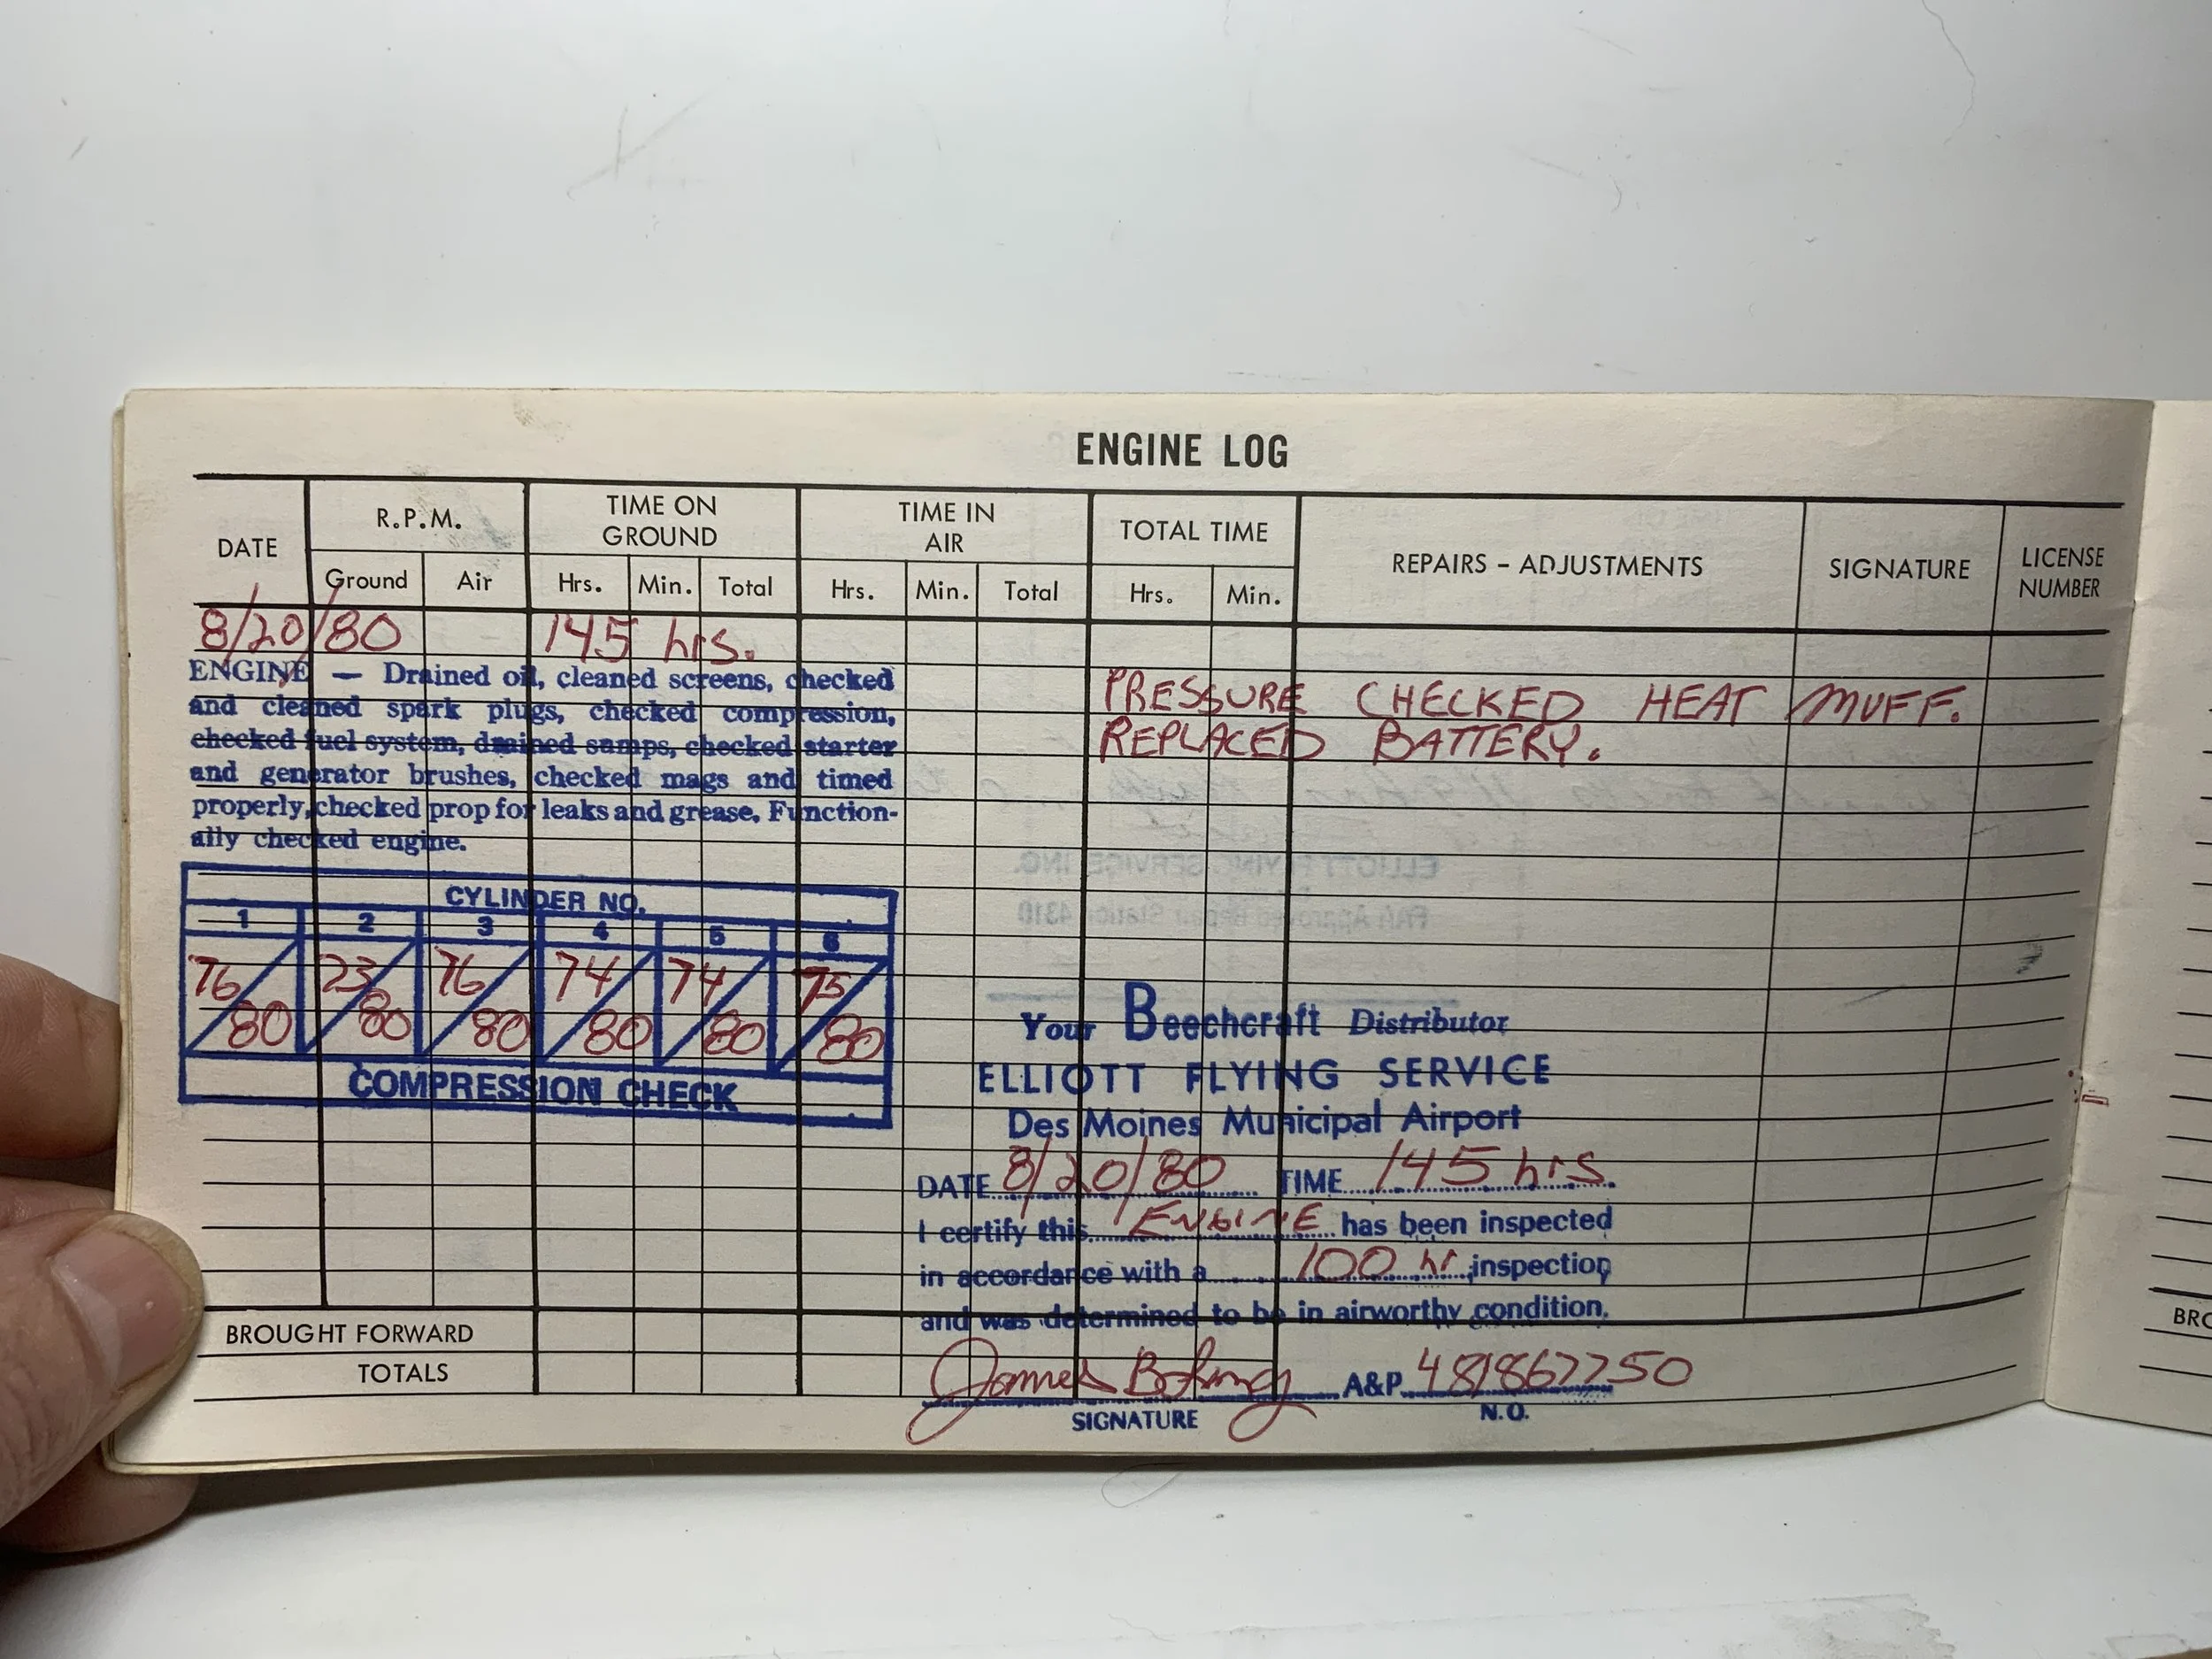 ENGINE LOG
DATE R.P.M. TIME ON GROUND TIME IN AIR TOTAL TIME REPAIRS - ADJUSTMENTS SIGNATURE LICENSE NUMBER
Ground Air Hrs. Min. Total Hrs. Min. Total Hrs. Min.
8/20/80 145 hrs.
ENGINE — Drained oil, cleaned screens, checked
and cleaned spark plugs, checked compression,
checked fuel system, drained sumps, checked starter
and generator brushes, checked mags and timed
properly, checked prop for leaks and grease. Function-
ally checked engine.
PRESSURE CHECKED HEAT MUFF.
REPLACED BATTERY.
CYLINDER NO.
1 2 3 4 5 6
76/80 23/80 76/80 74/80 74/80 75/80
COMPRESSION CHECK
Your Beechcraft Distributor
ELLIOTT FLYING SERVICE
Des Moines Municipal Airport
DATE 8/20/80 TIME 145 hrs.
I certify this ENGINE has been inspected
in accordance with a 100 hr inspection
and was determined to be in airworthy condition.
James A&P 481867750
SIGNATURE N.O.
BROUGHT FORWARD
TOTALS
BRO